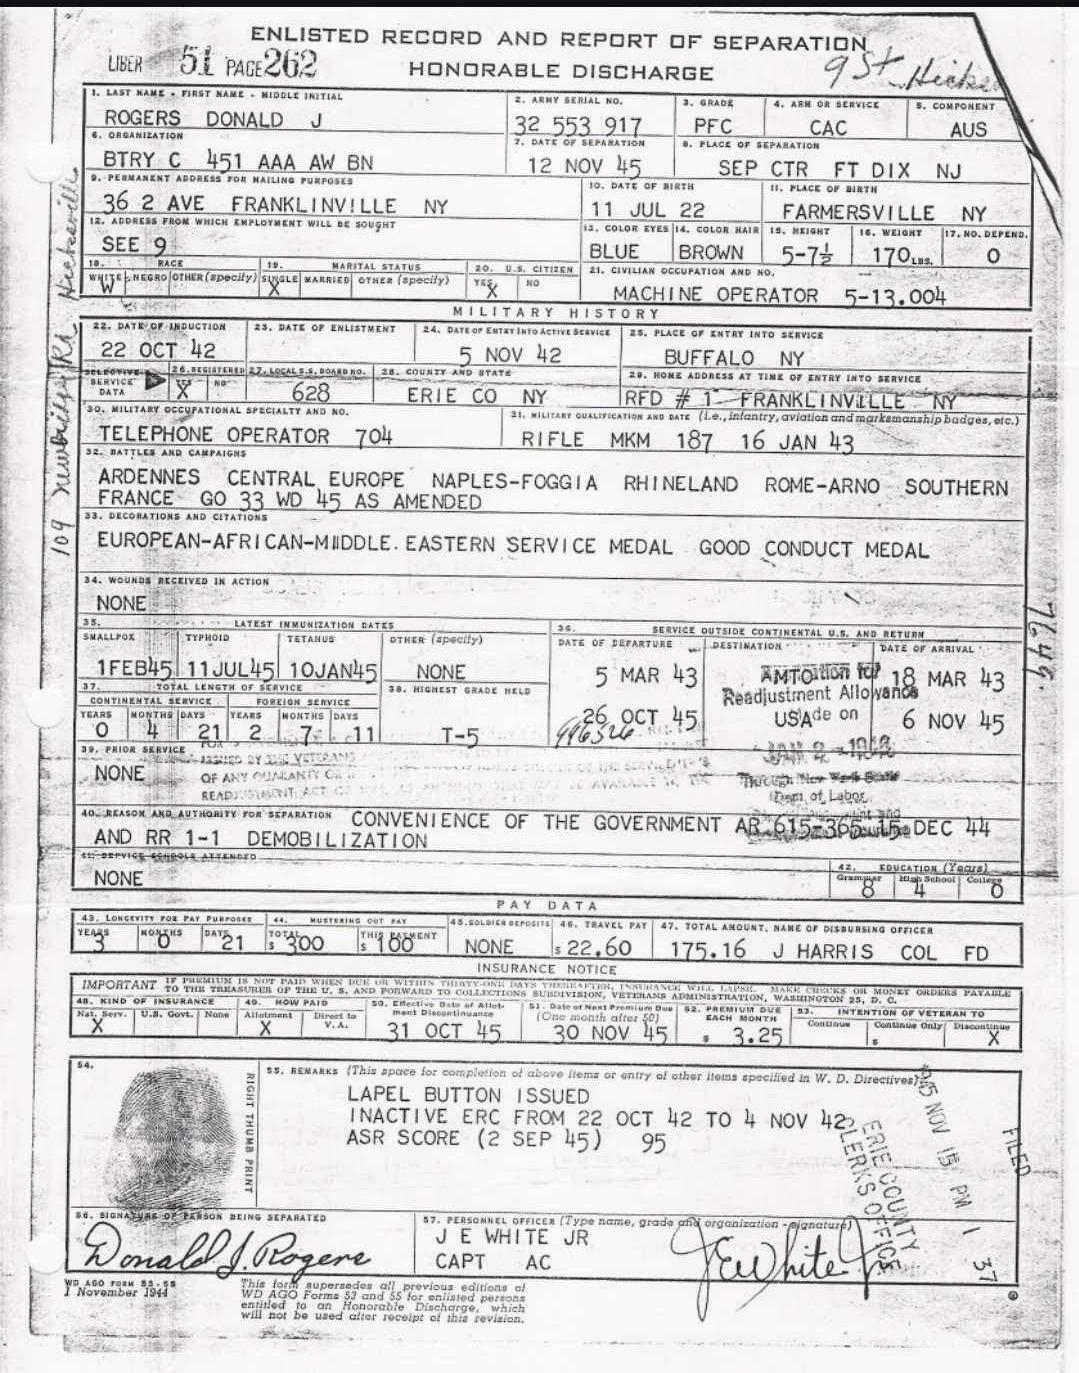 ENLISTED RECORD AND REPORT OF SEPARATION
HONORABLE DISCHARGE
LIBER 51 PAGE 262
9 St.
1. LAST NAME - FIRST NAME - MIDDLE INITIAL
ROGERS DONALD J
2. ARMY SERIAL NO.
32 553 917
3. GRADE
PFC
4. ARM OR SERVICE
CAC
5. COMPONENT
AUS
6. ORGANIZATION
BTRY C 451 AAA AW BN
7. DATE OF SEPARATION
12 NOV 45
8. PLACE OF SEPARATION
SEP CTR FT DIX NJ
9. PERMANENT ADDRESS FOR MAILING PURPOSES
36 2 AVE FRANKLINVILLE NY
10. DATE OF BIRTH
11 JUL 22
11. PLACE OF BIRTH
FARMERSVILLE NY
12. ADDRESS FROM WHICH EMPLOYMENT WILL BE SOUGHT
SEE 9
13. COLOR EYES
BLUE
14. COLOR HAIR
BROWN
15. HEIGHT
5-7½
16. WEIGHT
170 LBS.
17. NO. DEPEND.
0
18. RACE
WHITE NEGRO OTHER (specify)
W
19. MARITAL STATUS
SINGLE MARRIED OTHER (specify)
X
20. U.S. CITIZEN
YES NO
X
21. CIVILIAN OCCUPATION AND NO.
MACHINE OPERATOR 5-13.004
MILITARY HISTORY
22. DATE OF INDUCTION
22 OCT 42
23. DATE OF ENLISTMENT
24. DATE OF ENTRY INTO ACTIVE SERVICE
5 NOV 42
25. PLACE OF ENTRY INTO SERVICE
BUFFALO NY
SELECTIVE SERVICE DATA
26. REGISTERED
YES NO
X
27. LOCAL S.S. BOARD NO.
628
28. COUNTY AND STATE
ERIE CO NY
29. HOME ADDRESS AT TIME OF ENTRY INTO SERVICE
RFD # 1 FRANKLINVILLE NY
30. MILITARY OCCUPATIONAL SPECIALTY AND NO.
TELEPHONE OPERATOR 704
31. MILITARY QUALIFICATION AND DATE (i.e., infantry, aviation and marksmanship badges, etc.)
RIFLE MKM 187 16 JAN 43
32. BATTLES AND CAMPAIGNS
ARDENNES CENTRAL EUROPE NAPLES-FOGGIA RHINELAND ROME-ARNO SOUTHERN
FRANCE GO 33 WD 45 AS AMENDED
33. DECORATIONS AND CITATIONS
EUROPEAN-AFRICAN-MIDDLE.EASTERN SERVICE MEDAL GOOD CONDUCT MEDAL
34. WOUNDS RECEIVED IN ACTION
NONE
35. LATEST IMMUNIZATION DATES
SMALLPOX TYPHOID TETANUS OTHER (specify)
1FEB45 11JUL45 10JAN45 NONE
36. SERVICE OUTSIDE CONTINENTAL U.S. AND RETURN
DATE OF DEPARTURE DESTINATION DATE OF ARRIVAL
5 MAR 43 AMTO 18 MAR 43
Readjustment Allowance
26 OCT 45 USA 6 NOV 45
37. TOTAL LENGTH OF SERVICE
CONTINENTAL SERVICE FOREIGN SERVICE
YEARS MONTHS DAYS YEARS MONTHS DAYS
0 4 21 2 7 11
38. HIGHEST GRADE HELD
T-5
39. PRIOR SERVICE
NONE
ISSUED BY THE VETERANS
Through New York State
Dept. of Labor
40. REASON AND AUTHORITY FOR SEPARATION
CONVENIENCE OF THE GOVERNMENT AR 615-365 15 DEC 44
AND RR 1-1 DEMOBILIZATION
41. SERVICE SCHOOLS ATTENDED
NONE
42. EDUCATION (Years)
Grammar High School College
8 4 0
PAY DATA
43. LONGEVITY FOR PAY PURPOSES
YEARS MONTHS DAYS
3 0 21
44. MUSTERING OUT PAY
TOTAL THIS PAYMENT
$ 300 $ 100
45. SOLDIER DEPOSITS
NONE
46. TRAVEL PAY
$ 22.60
47. TOTAL AMOUNT, NAME OF DISBURSING OFFICER
175.16 J HARRIS COL FD
INSURANCE NOTICE
IMPORTANT IF PREMIUM IS NOT PAID WHEN DUE OR WITHIN THIRTY-ONE DAYS THEREAFTER, INSURANCE WILL LAPSE. MAKE CHECKS OR MONEY ORDERS PAYABLE
TO THE TREASURER OF THE U. S. AND FORWARD TO COLLECTIONS SUBDIVISION, VETERANS ADMINISTRATION, WASHINGTON 25, D. C.
48. KIND OF INSURANCE
Nat. Serv. U.S. Govt. None
X
49. HOW PAID
Allotment Direct to V.A.
X
50. Effective Date of Allotment Discontinuance
31 OCT 45
51. Date of Next Premium Due (One month after 50)
30 NOV 45
52. PREMIUM DUE EACH MONTH
$ 3.25
53. INTENTION OF VETERAN TO
Continue Continue Only Discontinue
$ X
54.
RIGHT THUMB PRINT
55. REMARKS (This space for completion of above items or entry of other items specified in W. D. Directives)
LAPEL BUTTON ISSUED
INACTIVE ERC FROM 22 OCT 42 TO 4 NOV 42
ASR SCORE (2 SEP 45) 95
FILED
1945 NOV 15 PM 1 37
ERIE COUNTY
CLERKS OFFICE
56. SIGNATURE OF PERSON BEING SEPARATED
Donald J. Rogers
57. PERSONNEL OFFICER (Type name, grade and organization - signature)
J E WHITE JR
CAPT AC
J E White Jr
WD AGO FORM 53-55
1 November 1944
This form supersedes all previous editions of
WD AGO Forms 53 and 55 for enlisted persons
entitled to an Honorable Discharge, which
will not be used after receipt of this revision.
109 Newbridge Rd Hicksville